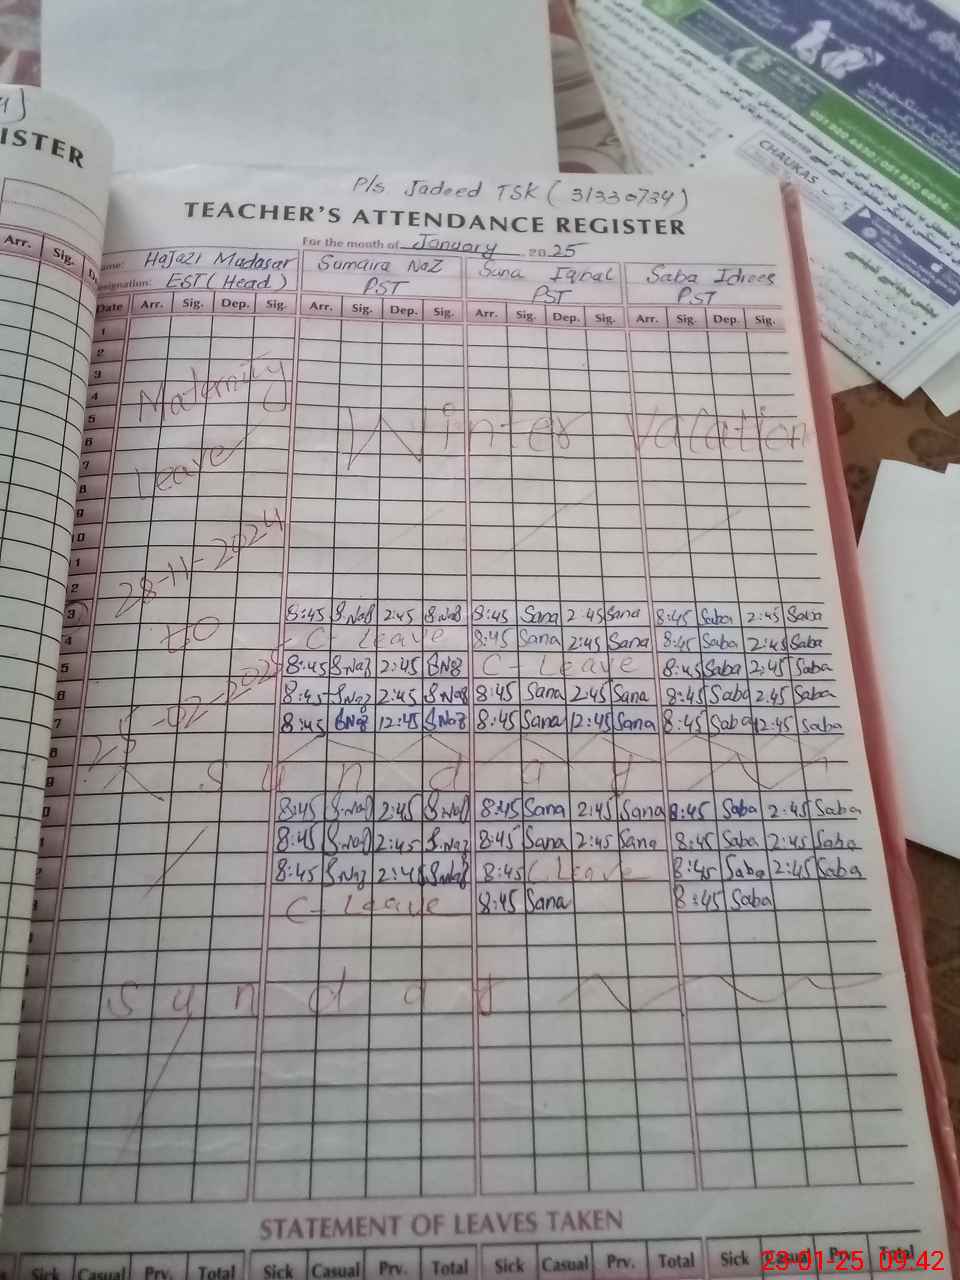 ISTER
P/s Jadeed TSK (31330734)
TEACHER'S ATTENDANCE REGISTER
For the month of January 2025
ame: Hajazi Mudasar Sumaira Naz Sana Iqbal Saba Idrees
esignation: EST (Head) PST PST PST
Arr. Sig. D
Date Arr. Sig. Dep. Sig. Arr. Sig. Dep. Sig. Arr. Sig. Dep. Sig. Arr. Sig. Dep. Sig.
1
2
3
4 Maternity
5 Winter Vacation
6
7
8 Leave
9
0
1
2 28-11-2024
3 8:45 S.Naz 2:45 S.Naz 8:45 Sana 2:45 Sana 8:45 Saba 2:45 Saba
4 to C- Leave 8:45 Sana 2:45 Sana 8:45 Saba 2:45 Saba
5 8:45 S.Naz 2:45 S.Naz C- Leave 8:45 Saba 2:45 Saba
6 25-02-2025 8:45 S.Naz 2:45 S.Naz 8:45 Sana 2:45 Sana 8:45 Saba 2:45 Saba
7 8:45 S.Naz 12:45 S.Naz 8:45 Sana 12:45 Sana 8:45 Saba 12:45 Saba
8
9 Sunday
0 8:45 S.Naz 2:45 S.Naz 8:45 Sana 2:45 Sana 8:45 Saba 2:45 Saba
1 8:45 S.Naz 2:45 S.Naz 8:45 Sana 2:45 Sana 8:45 Saba 2:45 Saba
2 8:45 S.Naz 2:45 S.Naz 8:45 C.Leave 8:45 Saba 2:45 Saba
C- Leave 8:45 Sana 8:45 Saba
Sunday
STATEMENT OF LEAVES TAKEN
Sick Casual Prv. Total Sick Casual Prv. Total Sick Casual Prv. Total Sick Casual Prv. Total
23-01-25 09:42
CHAUKAS